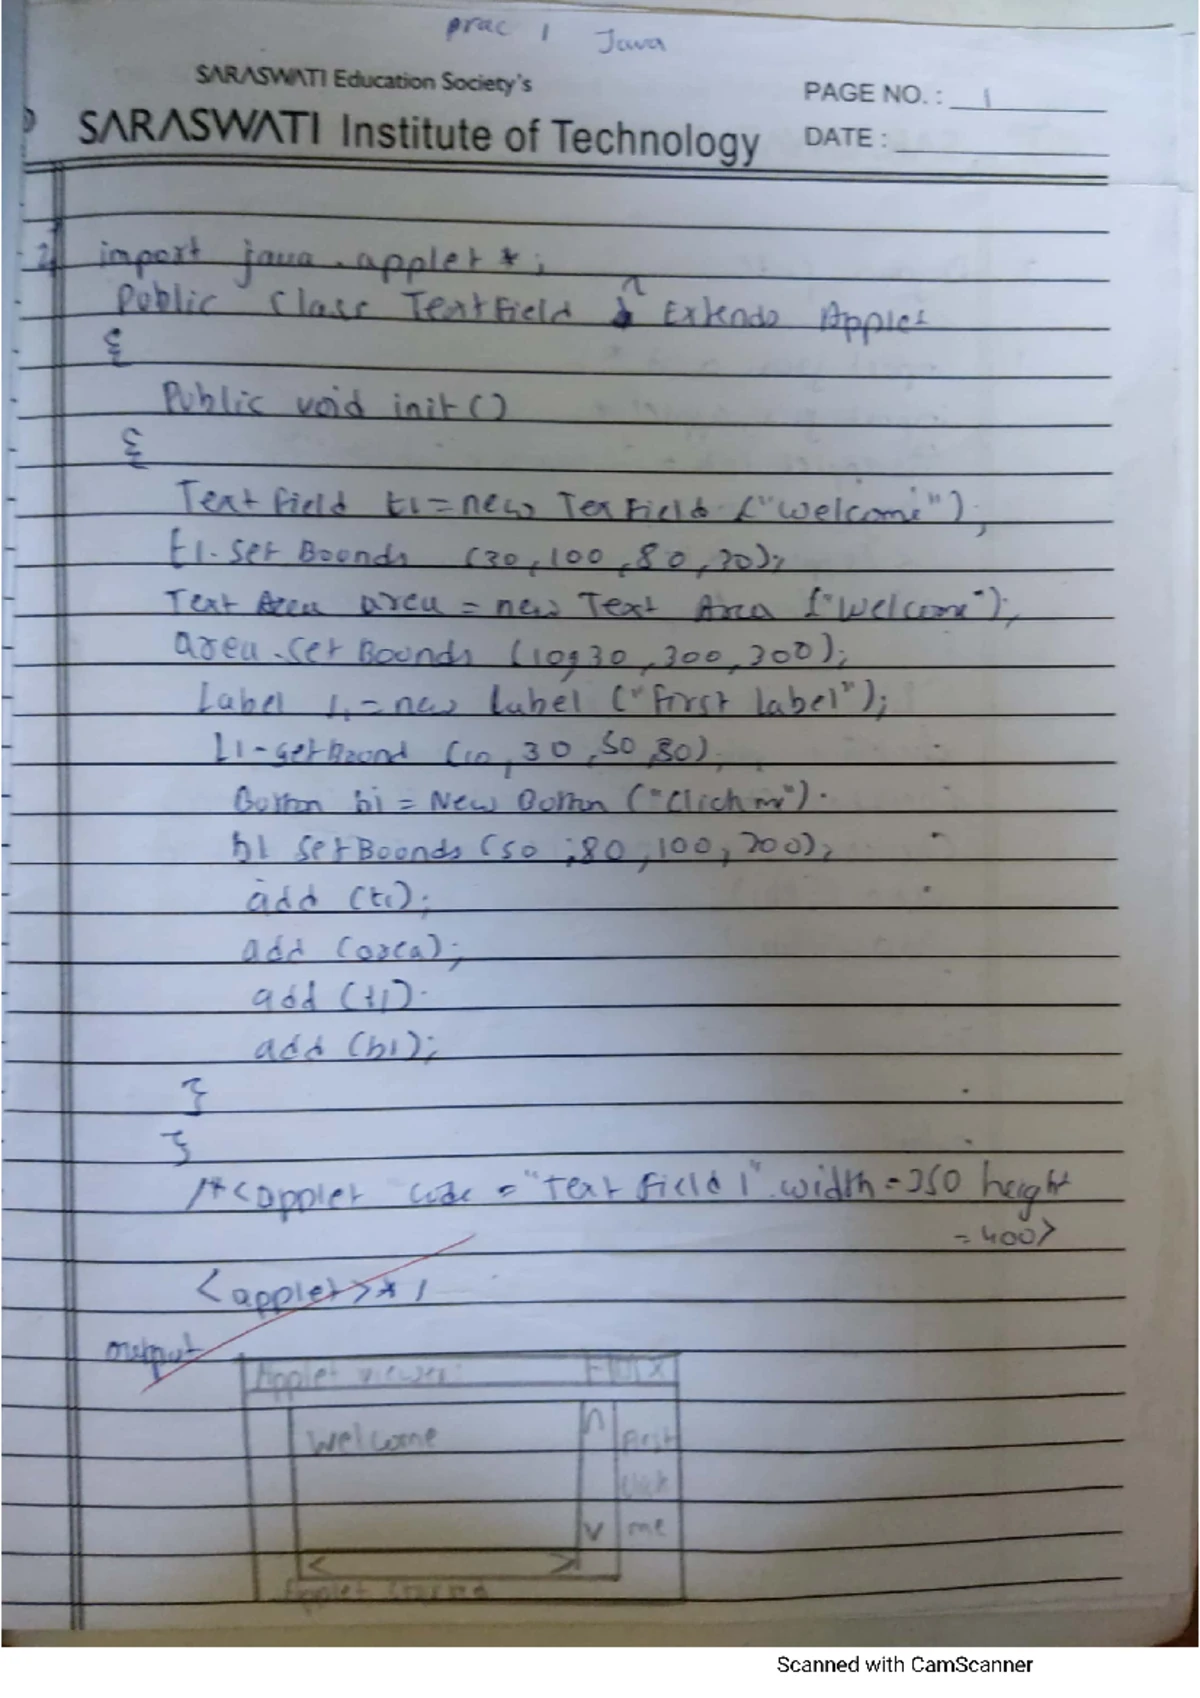 prac 1 Java
SARASWATI Education Society's
SARASWATI Institute of Technology
PAGE NO.: 1
DATE:
2] import java.applet *;
Public Class TextField 1 Extends Applet
{
Public void init()
{
Text field t1 = new TexField ("Welcome");
t1. Set Bounds (30, 100, 80, 20);
Text Area area = new Text Area ("Welcome");
area.Set Bounds (10,30,300,300);
Label l1 = new Label ("first label");
L1-setBound (10,30,50,80),
Button b1 = New Button ("Click me").
b1 SetBounds (50,80,100,200);
add (t1);
add (area);
add (l1).
add (b1);
}
}
/*<applet code = "text field 1" width=350 height
=400>
<applet>*/
output
Applet viewer
Welcome
First
Click
me
Applet
Scanned with CamScanner